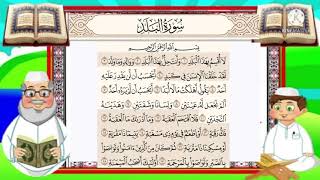 سُورَةُ البَلَدِ
بِسْمِ اللَّهِ الرَّحْمَٰنِ الرَّحِيمِ
لَآ أُقْسِمُ بِهَٰذَا ٱلْبَلَدِ ١ وَأَنتَ حِلٌّۢ بِهَٰذَا ٱلْبَلَدِ ٢ وَوَالِدٍ وَمَا وَلَدَ ٣
لَقَدْ خَلَقْنَا ٱلْإِنسَٰنَ فِى كَبَدٍ ٤ أَيَحْسَبُ أَن لَّن يَقْدِرَ عَلَيْهِ
أَحَدٌ ٥ يَقُولُ أَهْلَكْتُ مَالًا لُّبَدًا ٦ أَيَحْسَبُ أَن لَّمْ يَرَهُۥٓ أَحَدٌ ٧
أَلَمْ نَجْعَل لَّهُۥ عَيْنَيْنِ ٨ وَلِسَانًا وَشَفَتَيْنِ ٩ وَهَدَيْنَٰهُ
ٱلنَّجْدَيْنِ ١٠ فَلَا ٱقْتَحَمَ ٱلْعَقَبَةَ ١١ وَمَآ أَدْرَىٰكَ مَا ٱلْعَقَبَةُ ١٢
فَكُّ رَقَبَةٍ ١٣ أَوْ إِطْعَٰمٌ فِى يَوْمٍ ذِى مَسْغَبَةٍ ١٤ يَتِيمًا ذَا مَقْرَبَةٍ
١٥ أَوْ مِسْكِينًا ذَا مَتْرَبَةٍ ١٦ ثُمَّ كَانَ مِنَ ٱلَّذِينَ ءَامَنُوا۟ وَتَوَاصَوْا۟
بِٱلصَّبْرِ وَتَوَاصَوْا۟ بِٱلْمَرْحَمَةِ ١٧ أُو۟لَٰٓئِكَ أَصْحَٰبُ ٱلْمَيْمَنَةِ ١٨